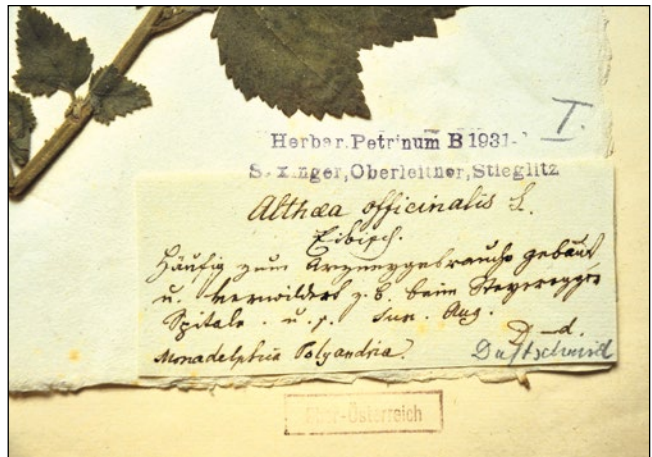 I.
Herbar. Petrinum B 1931-
S. x nger, Oberleitner, Stieglitz
Althæa officinalis L.
Eibisch.
Häufig zum Arzneygebrauche gebaut
u. verwildert z. b. beim Steyeregger
Spitale. u. s. Jun. Aug.
D—d.
Monadelphia Polyandria.
Duftschmid
Ober-Österreich